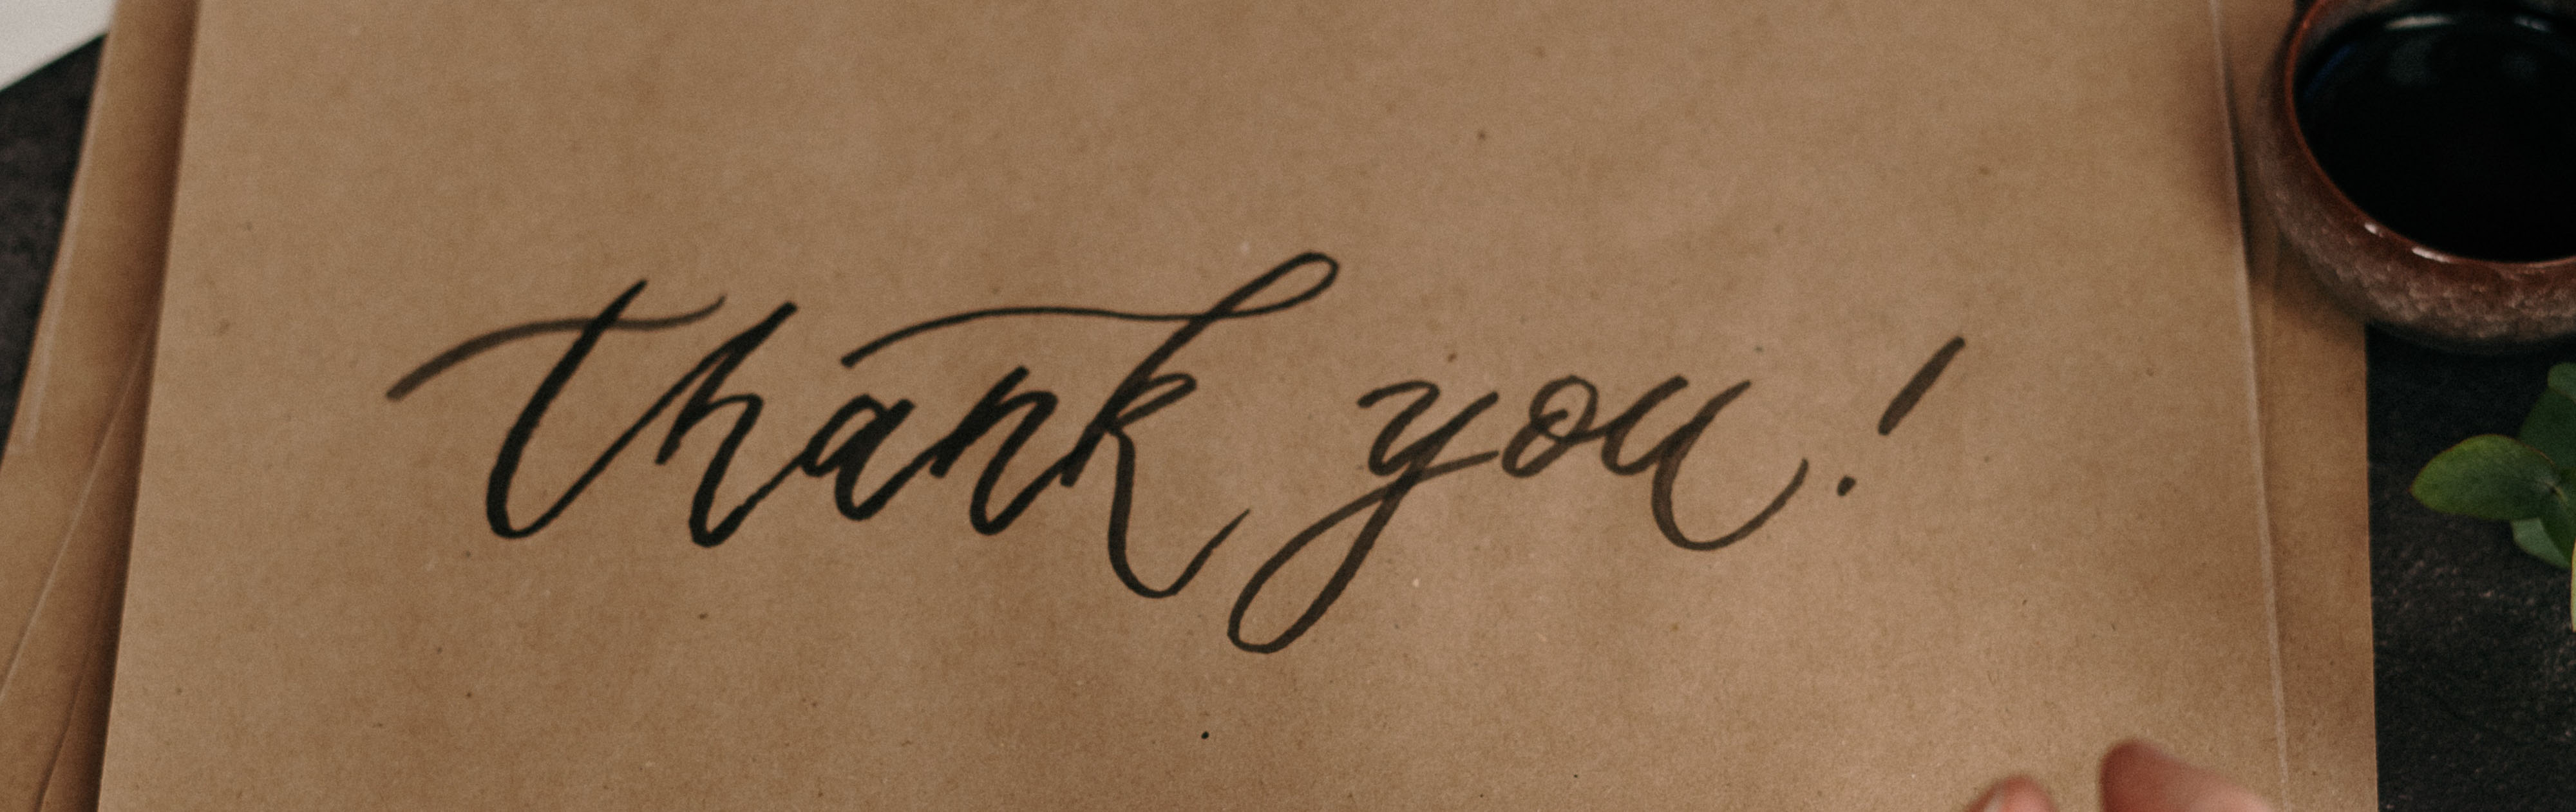 thank you!